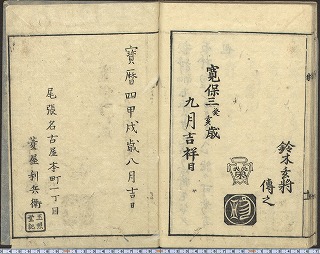 寛保三癸亥歳
九月吉祥日
鈴木玄將
傳之
寳暦四甲戌歳八月吉日
尾張名古屋本町一丁目
菱屋利兵衛